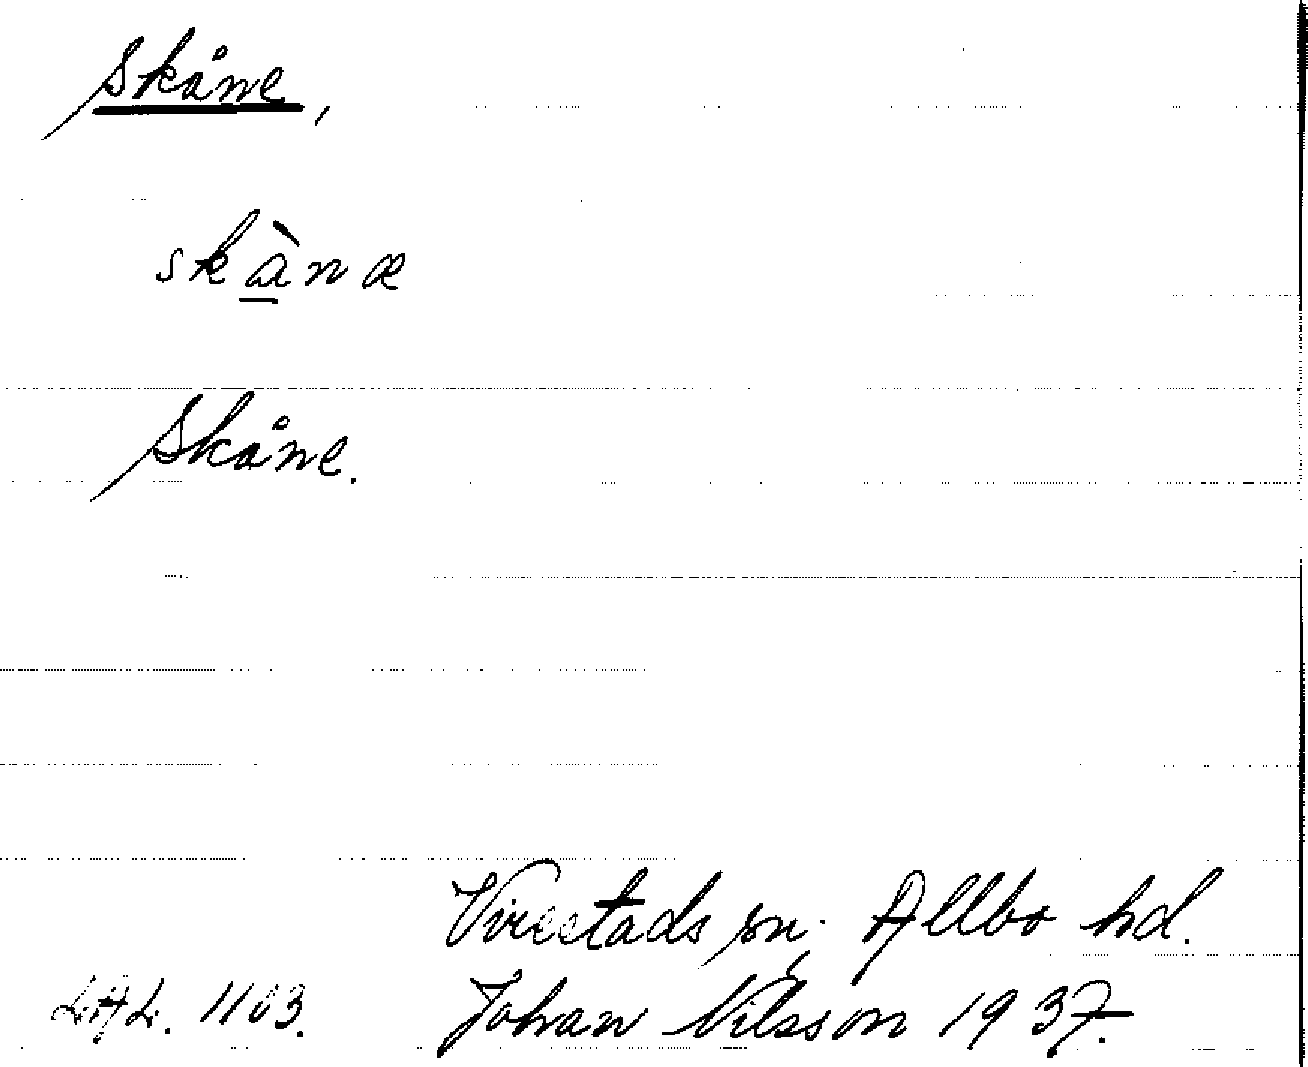 Skåne,
skànæ
Skåne.
Virestads sn. Allbo hd.
LAL. 1103. Johan Nilsson 1937.